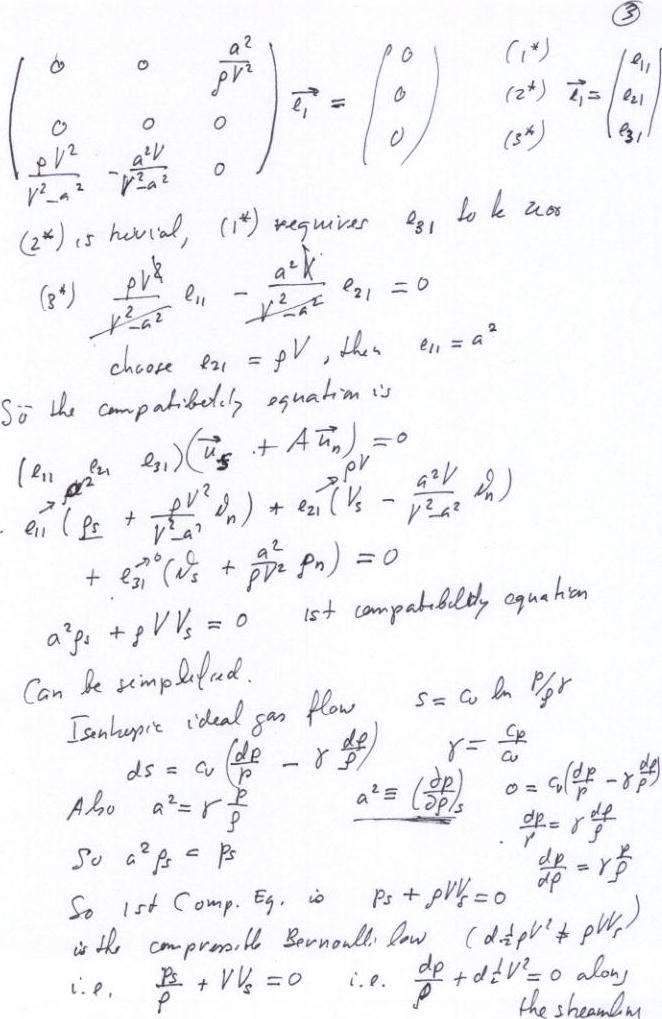 ③
( 0 0 a²/ρV² ) ( 0 ) (1*) ( e₁₁ )
( 0 0 0 ) e⃗₁ = ( 0 ) (2*) e⃗₁ = ( e₂₁ )
( ρV²/V²-a² - a²V/V²-a² 0 ) ( 0 ) (3*) ( e₃₁ )
(2*) is trivial, (1*) requires e₃₁ to be zero
(3*) ρV²/V²-a² e₁₁ - a²V/V²-a² e₂₁ = 0
choose e₂₁ = ρV, then e₁₁ = a²
So the compatibility equation is
(e₁₁ e₂₁ e₃₁)(u⃗s + A u⃗n) = 0
e₁₁ →a² (ρs + ρV²/V²-a² ϑn) + e₂₁ →ρV (Vs - a²V/V²-a² ϑn)
+ e₃₁ →0 (ϑs + a²/ρV² ρn) = 0
a²ρs + ρVVs = 0 1st compatibility equation
Can be simplified.
Isentropic ideal gas flow s = cv ln p/ργ
ds = cv (dp/p - γ dρ/ρ) γ = cp/cv
Also a² = γ p/ρ a² ≡ (∂p/∂ρ)s 0 = cv(dp/p - γ dρ/ρ)
dp/p = γ dρ/ρ
So a²ρs = ps dp/dρ = γ p/ρ
So 1st Comp. Eq. is ps + ρVVs = 0
is the compressible Bernoulli law (d½ρV² ≠ ρVVs)
i.e. ps/ρ + VVs = 0 i.e. dp/ρ + d½V² = 0 along
the streamline